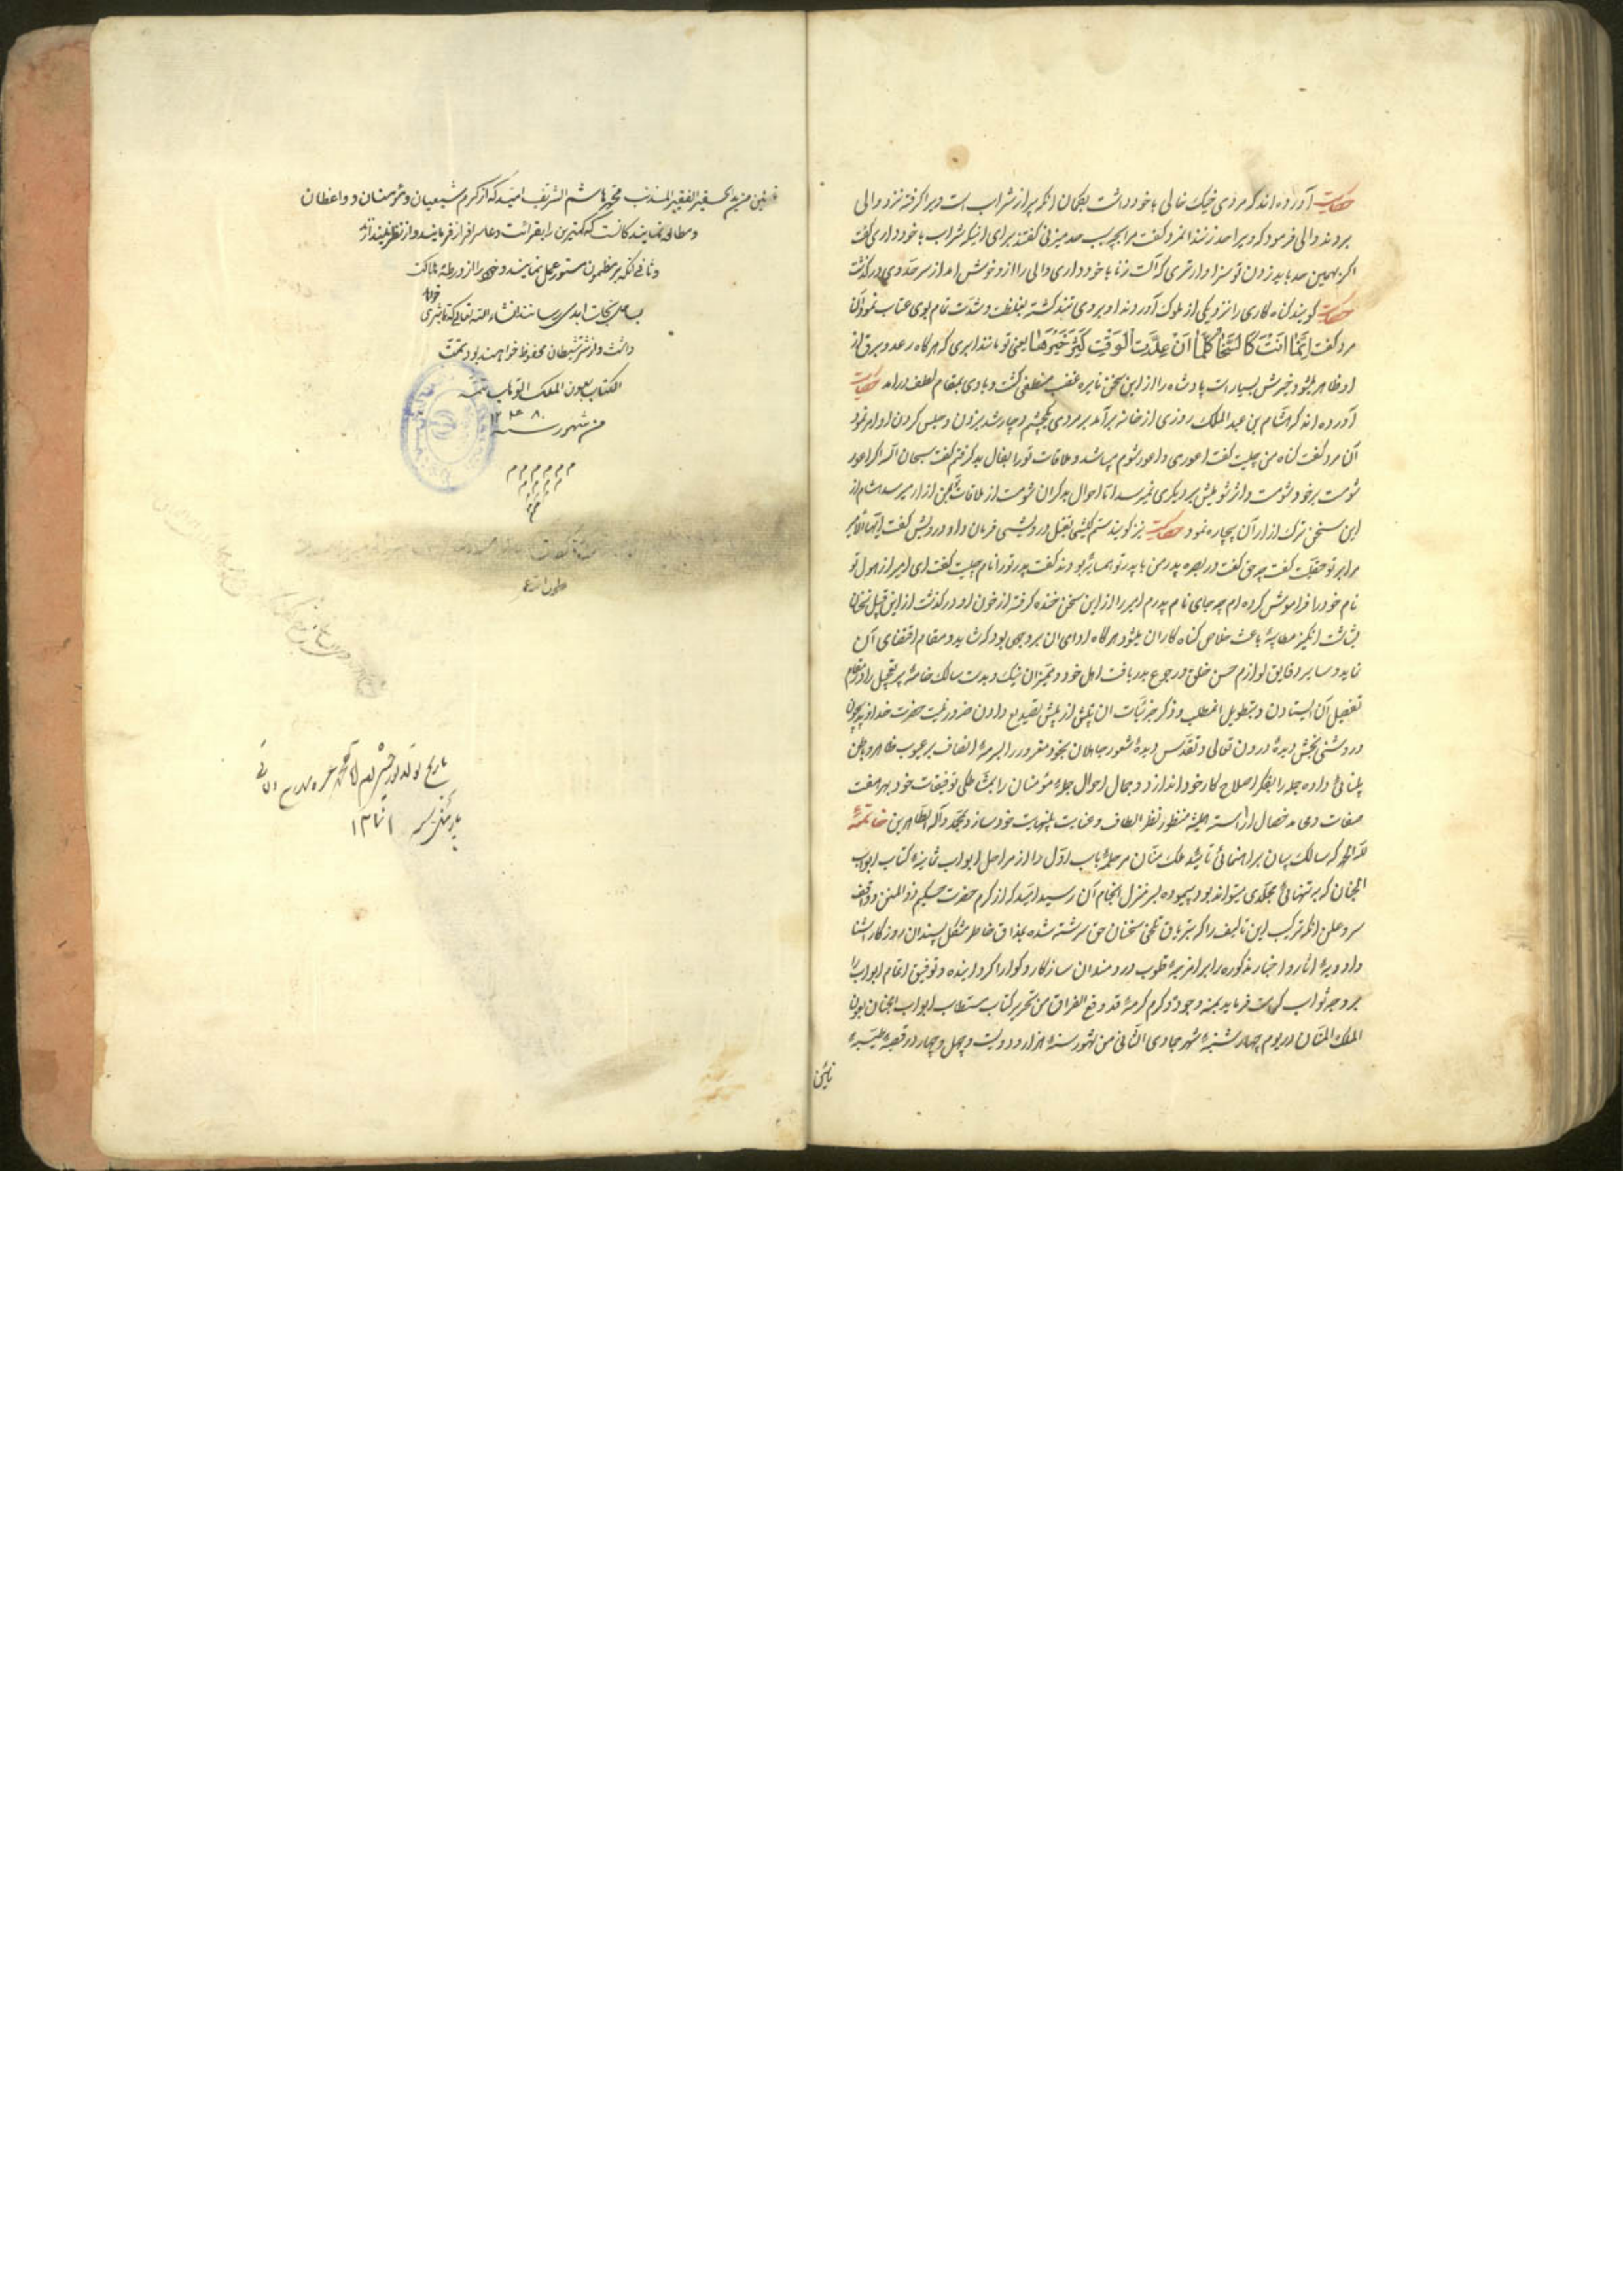 حکایت آورده اند که مردی خیک خالی با خود داشت بگمان انکه پر از شراب است ویرا گرفته نزد والی
بردند والی فرمود که ویرا حد زنند انمرد گفت مرا بچه سبب حد میزنی گفتند برای اینکه شراب با خود داری گفت
اکر بهمین حد باید زدن تو سزاوارتری که آلت زنا با خود داری والی را از و خوش امد از سر حد وی درگذشت
حکایت گویند گناه کاری را نزد یکی از ملوک آوردند او بر وی تند گشته بغلظت و شدت تمام با وی عتاب نمود آن
مرد گفت اِنَّما اَنْتَ کَالسَّحابِ کُلَّما یعنی تو مانند ابری که هر گاه رعد و برق از
او ظاهر میشود خیرش بسیار است پادشاه را از این سخن نایره غضب منطفی گشت و با وی بمقام لطف درامد حکایت
آورده اند که هشام بن عبد الملک روزی از خانه برآمد بر مردی یکچشم دچار شد بزدن و حبس کردن او امر نمود
آن مرد گفت گناه من چیست گفت اعوری و اعور شوم میباشد و ملاقات تو را بفال بد گرفتم گفت سبحان الله اگر اعور
شومست بر خود شومست و اثر شومیش بر دیگری نمیرسد اما احوال بدگران شومست از ملاقات بمن ازار میرسد هشام از
این سخن ترک ازار آن بیچاره نمود حکایت نیز گویند ستم کیشی بقتل درویشی فرمان داد درویش گفت ایها الامیر
مرا بر تو حقیست گفت چه حق گفت در بصره پدر من با پدر تو همسایه بودند گفت پدر تو را نام چیست گفت ای امیر از هول تو
نام خود را فراموش کرده ام چه جای نام پدرم امیر را از این سخن خنده گرفته از خون او درگذشت از این قبیل سخنان
بشاشت انگیز مطایبه باعث خلاص گناه کاران میشود هر گاه ادای ان بر وجهی بود که شاید و مقام اقتضای آن
نماید و سایر دقایق لوازم حسن خلق رجوع بدریافت اهل خود و ممیزان نیک و بدست سالک خامه پر تعجیل را در مقام
تفصیل آن ایستادن و بتطویل انمطلب و ذکر جزئیات ان پیش از پیش تصدیع دادن ضرور نیست حضرت خداوند بیچون
و روشنی بخش دیدهٔ درون تعالی و تقدس دیدهٔ شعور جاهلان بخود مغرور را بسرمهٔ انصاف بر عیوب ظاهر و باطن
بینائی داده جمله را بفکر اصلاح کار خود اندازد و جمال احوال جملهٔ مؤمنان را بمشاطگی توفیقات خود بهر صفت
صفات و محامد خصال اراسته همیشه منظور نظر الطاف و عنایت بینهایت خود سازد بمحمد وآله الطاهرین خاتمهٔ
لله الحمد که سالک بیان براهنمائی تائید ملک منان مرحلهٔ باب اول را از مراحل ابواب ثمانیه کتاب ابواب
الجنان که بر تنهائی مجلدی میتواند بود پیموده بسر منزل انجام آن رسید امید که از کرم حضرت حکیم ذو المنن و واقف
سر و علن انکه ترکیب این تالیف را که بتریاق تلخی سخنان حق سرشته شده بمذاق خاطر مشکل پسندان روزگار اشنا
و ادویهٔ اثار و اخبار مذکوره را بر امزجهٔ قلوب دردمندان سازگار و گوارا گرداینده و توفیق اتمام ابواب را
بر وجه ثواب کرامت فرماید بمنه وجوده و کرم کرمهٔ قد وقع الفراق من تحریر کتاب مستطاب ابواب الجنان بعون
الملک المنان در یوم چهار شنبهٔ شهر جمادی الثانی من شهور سنهٔ هزار و دویست و چهل و چهار در قصبهٔ طیبهٔ
نائین
نائین من ید الحقیر الفقیر المذنب محمد هاشم الشریف امید که از کرم شیعیان و مؤمنان و واعظان
و مطالعه نمایند کانست که کمترین را بقرائت دعا سر افراز فرمایند و از نظر نیندازند
و ثانی انکه بر مظمون مستور عمل نمایند و خود را از ورطهٔ هلاکت
بساحل نجات ابدی رسانند انشاء الله تعالی که تاثیری خواهد
داشت و از شر شیطان محفوظ خواهند بود تمت
الکتاب بعون الملک الوهاب تمة
من شهور سنه
م م م م م م
تاریخ تولد نور چشم
۱۳۰۱